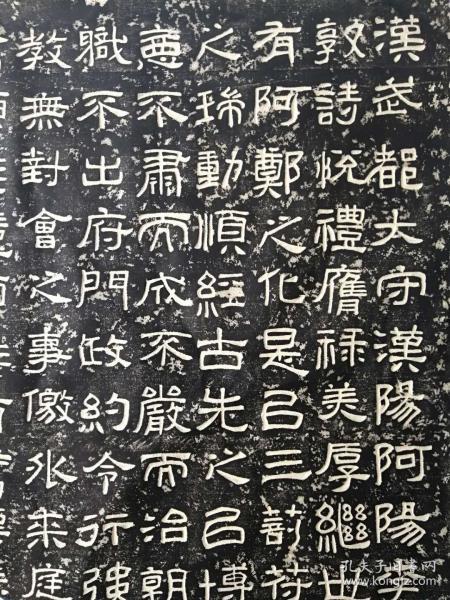 漢武都大守漢陽阿陽
敦詩悅禮膺祿美厚繼世
有阿鄭之化是㠯三蒞符
之瑞動順經古先之㠯博
惡不肅而成不嚴而治朝
職不出府門政約令行強
教無對會之事儌外來庭
孔夫子旧书网
www.kongfz.com